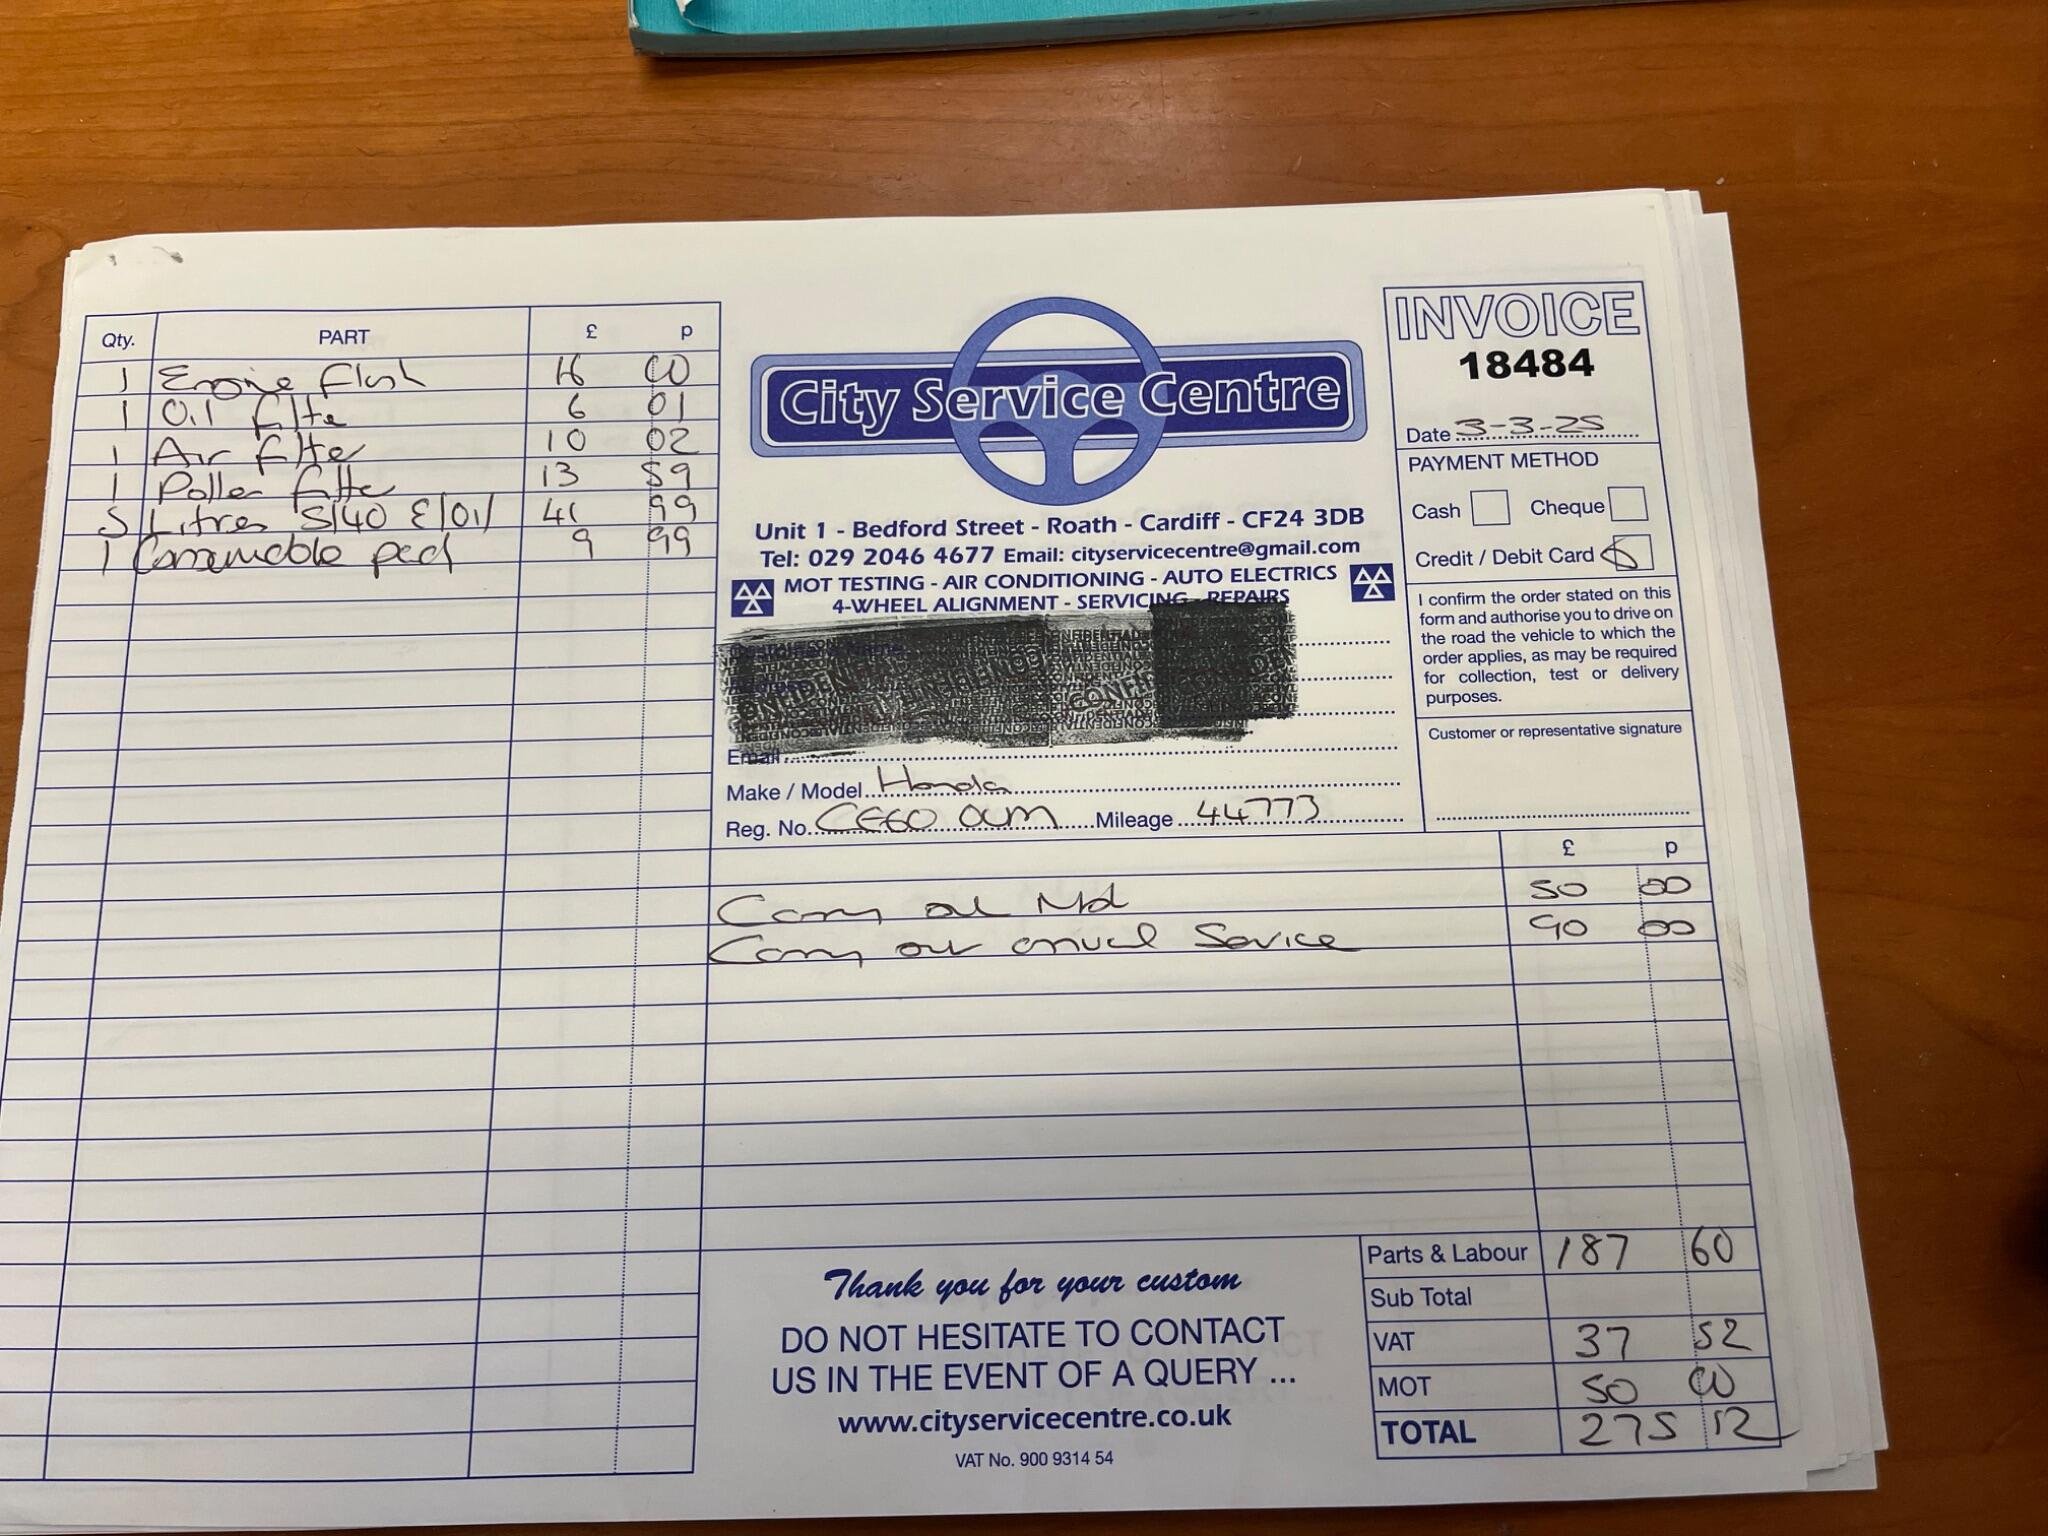 Qty. PART £ p
1 Engine flush 16 00
1 Oil filte 6 01
1 Air filter 10 02
1 Pollen filte 13 59
5 Litres 5/40 E/Oil 41 99
1 Consumable pad 9 99
City Service Centre
Unit 1 - Bedford Street - Roath - Cardiff - CF24 3DB
Tel: 029 2046 4677 Email: cityservicecentre@gmail.com
MOT TESTING - AIR CONDITIONING - AUTO ELECTRICS
4-WHEEL ALIGNMENT - SERVICING - REPAIRS
Email
Make / Model Honda
Reg. No. CE60 Mileage 44773
INVOICE
18484
Date 3-3-25
PAYMENT METHOD
Cash Cheque
Credit / Debit Card
I confirm the order stated on this
form and authorise you to drive on
the road the vehicle to which the
order applies, as may be required
for collection, test or delivery
purposes.
Customer or representative signature
£ p
Carry out Mot 50 00
Carry out annual Service 90 00
Thank you for your custom
DO NOT HESITATE TO CONTACT
US IN THE EVENT OF A QUERY ...
www.cityservicecentre.co.uk
VAT No. 900 9314 54
Parts & Labour 187 60
Sub Total
VAT 37 52
MOT 50 00
TOTAL 275 12